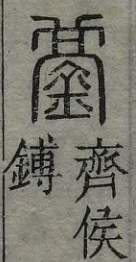 齊侯
鎛